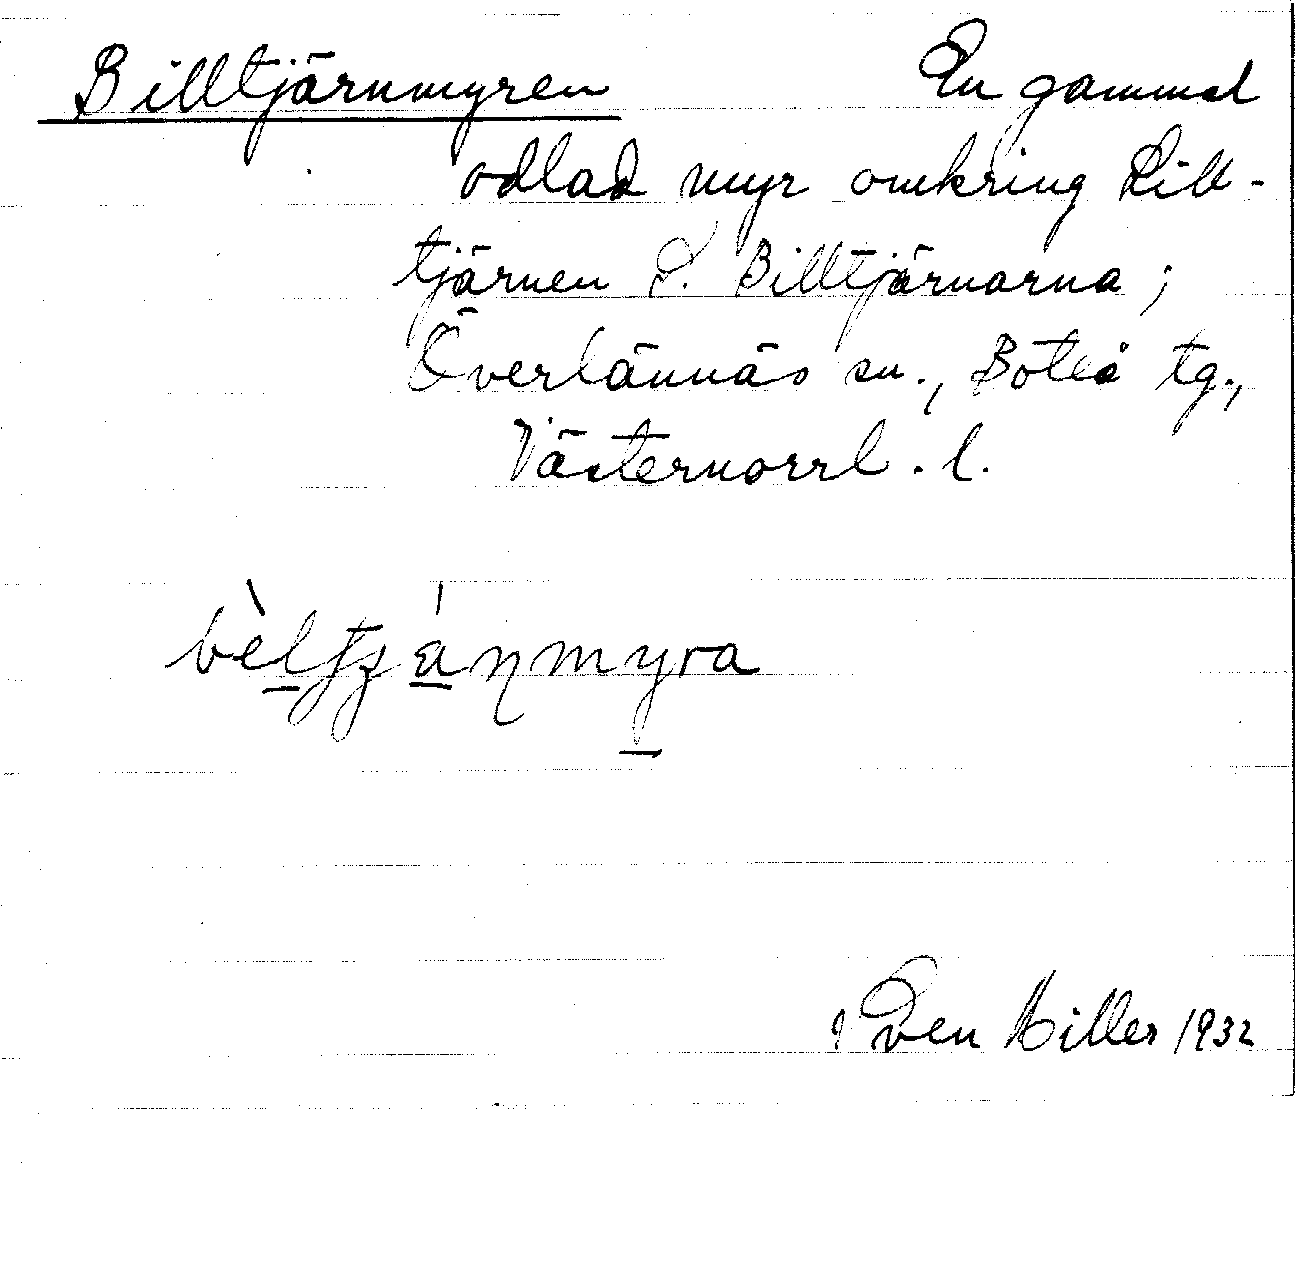 Billtjärnmyren En gammal
odlad myr omkring Lill-
tjärnen S. Billtjärnarna;
Överlännäs sn., Boteå tg.,
Västernorrl. l.
bèltjánmyra
Sven Hiller 1932